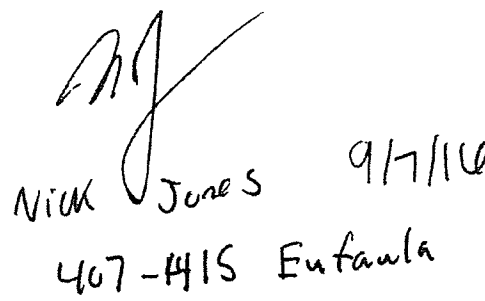 NJ
Nick Jones 9/7/16
407-1415 Eufaula